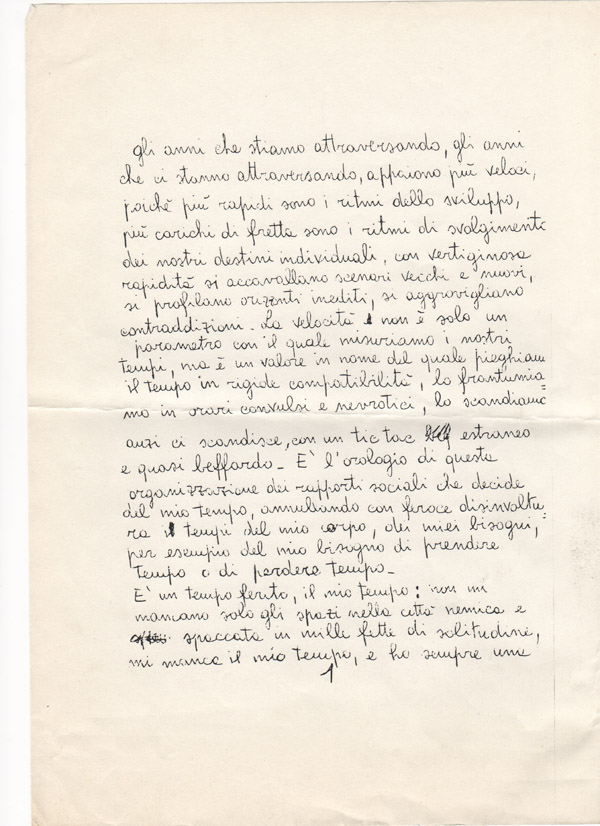 gli anni che stiamo attraversando, gli anni
che ci stanno attraversando, appaiono più veloci,
poiché più rapidi sono i ritmi dello sviluppo,
più carichi di fretta sono i ritmi di svolgimento
dei nostri destini individuali, con vertiginosa
rapidità si accavallano scenari vecchi e nuovi,
si profilano orizzonti inediti, si aggrovigliano
contraddizioni. La velocità non è solo un
parametro con il quale misuriamo i nostri
tempi, ma è un valore in nome del quale pieghiamo
il tempo in rigide compatibilità, lo frantumia=
mo in orari convulsi e nevrotici, lo scandiamo
anzi ci scandisce, con un tic tac estraneo
e quasi beffardo - E' l'orologio di questa
organizzazione dei rapporti sociali che decide
del mio tempo, annullando con feroce disinvoltu=
ra i tempi del mio corpo, dei miei bisogni,
per esempio del mio bisogno di prendere
tempo o di perdere tempo -
E' un tempo ferito, il mio tempo: non mi
mancano solo gli spazi nella città nemica e
spaccata in mille fette di solitudine,
mi manca il mio tempo, e ho sempre una
1